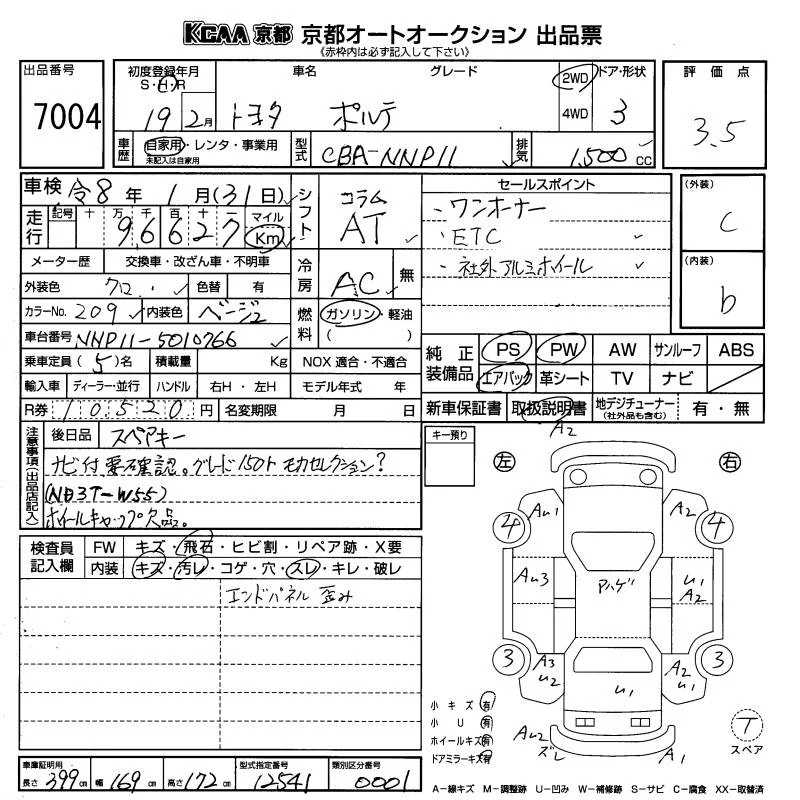 KCAA 京都 京都オートオークション 出品票
《赤枠内は必ず記入して下さい》
出品番号
7004
初度登録年月
S・H・R
19 2月
車名
トヨタ ポルテ
グレード
2WD
4WD
ドア・形状
3
評価点
3.5
車歴
自家用・レンタ・事業用
未記入は自家用
型式
CBA-NNP11
排気
1,500 cc
車検 令8年 1月(31日)
走行
記号 十 万 千 百 十 一
96627
マイル
Km
シフト
コラム
AT
セールスポイント
・ワンオーナー
・ETC
・社外アルミホイール
(外装)
C
(内装)
b
メーター歴 交換車・改ざん車・不明車
外装色 クロ 色替 有
カラーNo. 209 内装色 ベージュ
冷房
AC 無
燃料
ガソリン・軽油
( )
車台番号 NNP11-5010766
乗車定員 (5)名 積載量 Kg NOX 適合・不適合
輸入車 ディーラー・並行 ハンドル 右H・左H モデル年式 年
R券 10520円 名変期限 月 日
純正装備品
PS PW AW サンルーフ ABS
エアバック 革シート TV ナビ
新車保証書 取扱説明書 地デジチューナー(社外品も含む) 有・無
注意事項(出品店記入)
後日品 スペアキー
ナビ付要確認。グレード150r モカセレクション?
(ND3T-W55)
ホイールキャップ欠品。
キー預り
検査員記入欄
FW キズ・飛石・ヒビ割・リペア跡・X要
内装 キズ・汚レ・コゲ・穴・スレ・キレ・破レ
エンドパネル 歪み
左 右
A2
Au1 A2
4 4
Au3 アハゲ U1
A2
3 3
A3
U2
A2
U1
U1
Au2
ズレ
A1
小キズ 有
小U 有
ホイールキズ 有
ドアミラーキズ 有
T
スペア
車庫証明用
長さ 399cm 幅 169cm 高さ 172cm
型式指定番号
12541
類別区分番号
0001
A-線キズ M-調整跡 U-凹み W-補修跡 S-サビ C-腐食 XX-取替済